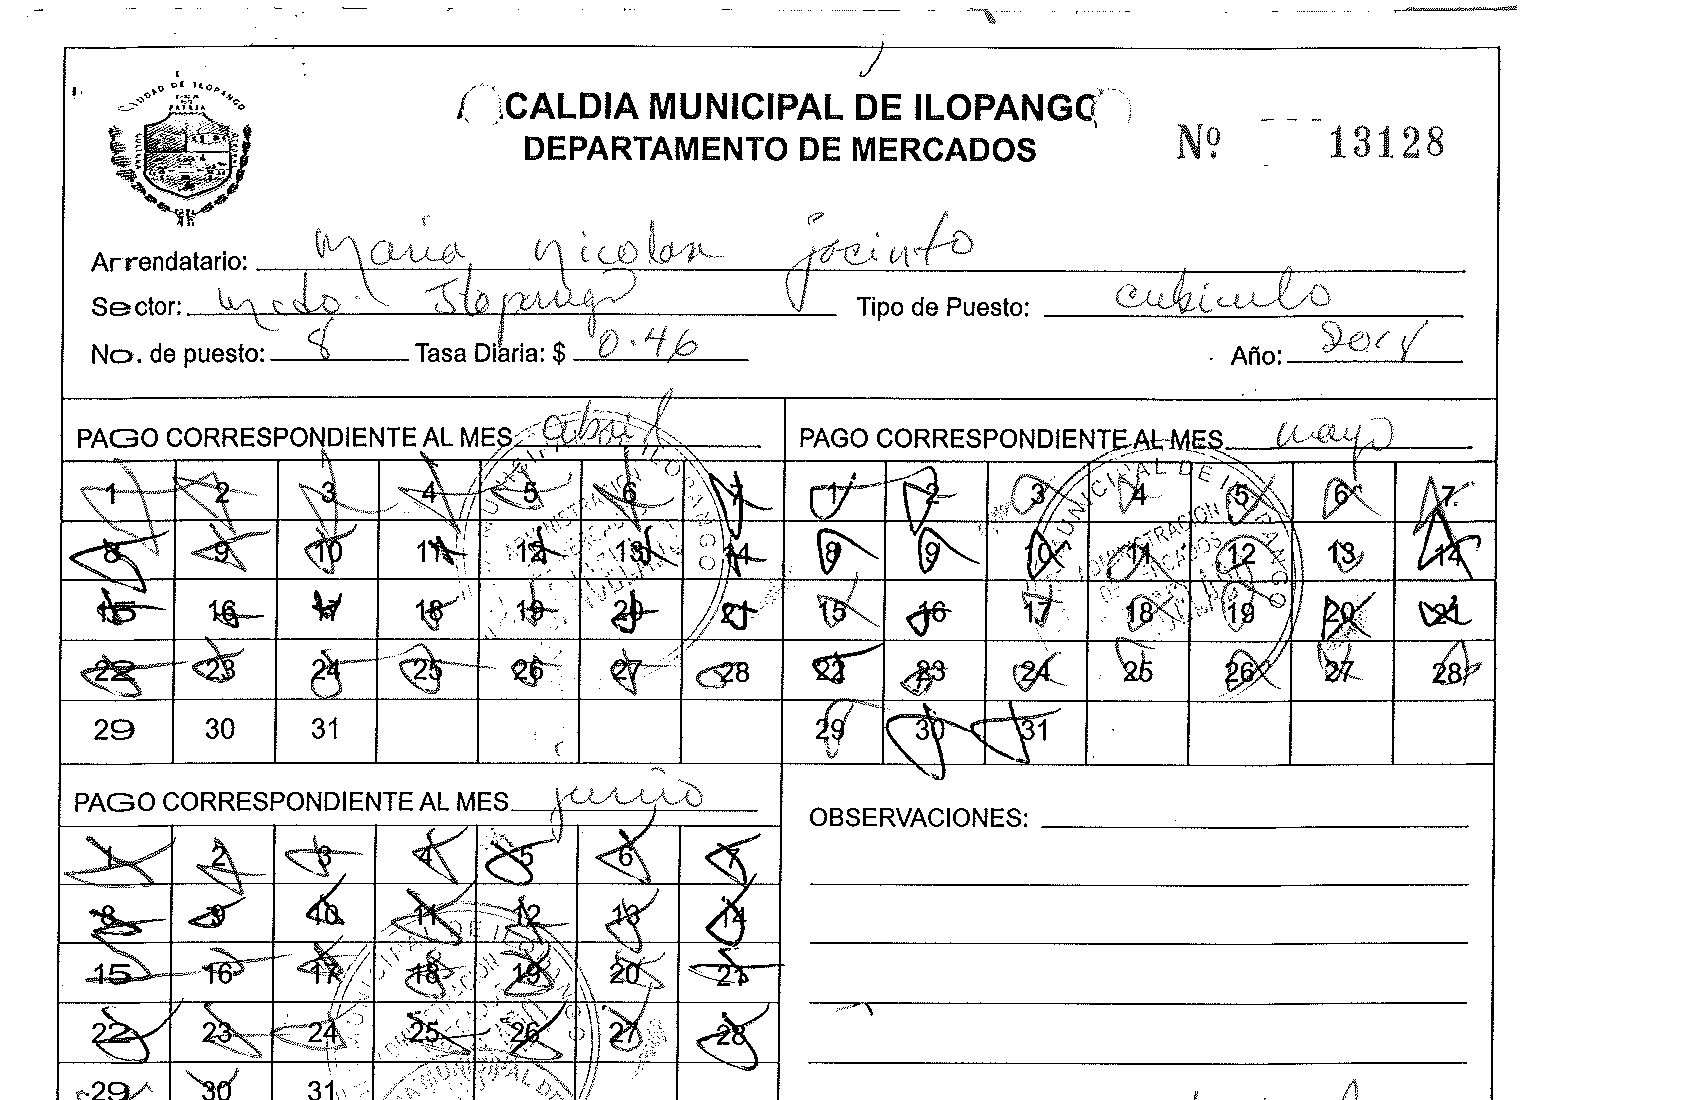 CIUDAD DE ILOPANGO
PATRIA
CALDIA MUNICIPAL DE ILOPANGO
DEPARTAMENTO DE MERCADOS
Nº 13128
Arrendatario: Maria Nicolasa jacinto
Sector: Mcdo. Ilopango Tipo de Puesto: cubiculo
No. de puesto: 8 Tasa Diaria: $ 0.46 Año:
PAGO CORRESPONDIENTE AL MES abril
1 2 3 4 5 6 7
8 9 10 11 12 13 14
15 16 17 18 19 20 21
22 23 24 25 26 27 28
29 30 31
PAGO CORRESPONDIENTE AL MES mayo
1 2 3 4 5 6 7
8 9 10 11 12 13 14
15 16 17 18 19 20 21
22 23 24 25 26 27 28
29 30 31
PAGO CORRESPONDIENTE AL MES junio
1 2 3 4 5 6 7
8 9 10 11 12 13 14
15 16 17 18 19 20 21
22 23 24 25 26 27 28
29 30 31
OBSERVACIONES: